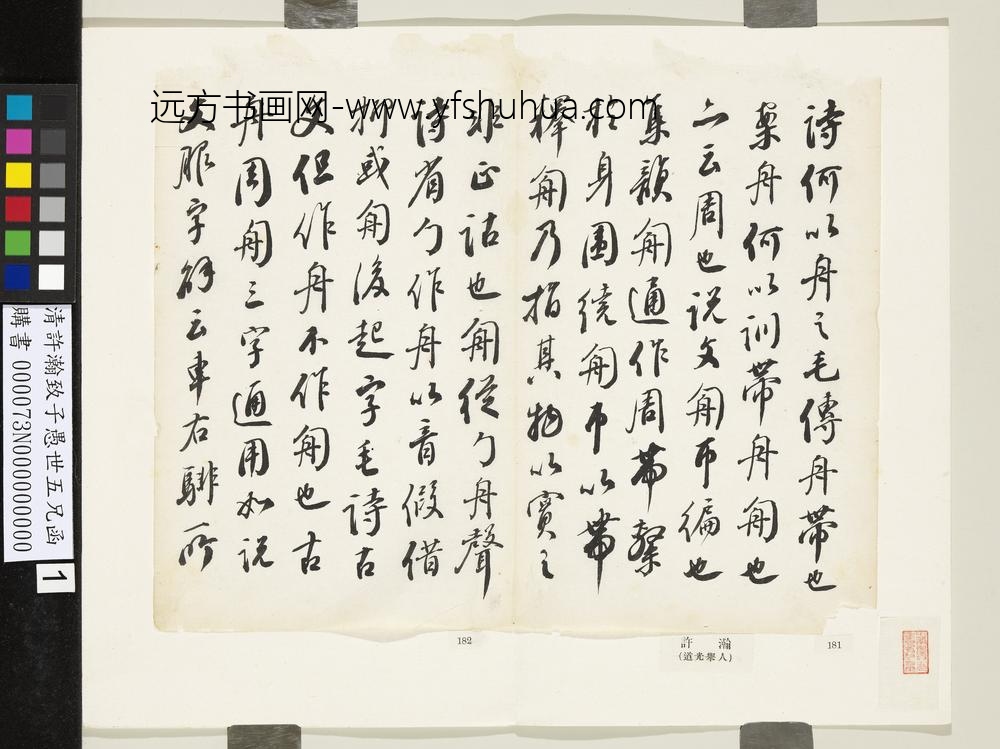 远方书画网-www.yfshuhua.com
詩何以舟之毛傳舟帶也
案舟何以訓帶舟𠣘也
云周也說文𠣘帀徧也
集韻𠣘通作周帶繫
於身圍繞𠣘帀以帶
釋𠣘乃指其物以實之
非正詁也𠣘從勹舟聲
詩省勹作舟以音假借
抑或𠣘後起字毛詩古
文但作舟不作𠣘也古
舟周𠣘三字通用如說
文服字解云車右騑所
181
許瀚
(道光舉人)
182
清許瀚致子愚世五兄函
購書 000073N000000000
1